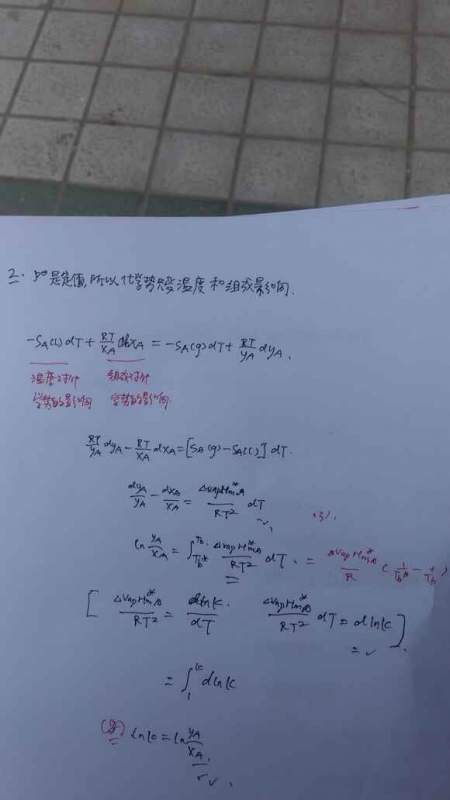 2. p°是定值,所以化学势只受温度和组成影响.
-S_A(l)dT + RT/x_A dx_A = -S_A(g)dT + RT/y_A dy_A.
温度对化 组成对化
学势的影响 学势的影响
RT/y_A dy_A - RT/x_A dx_A = [S_A(g) - S_A(l)] dT.
dy_A/y_A - dx_A/x_A = Δ_vap H*_m,A/RT² dT
ln y_A/x_A = ∫_{T_b*}^{T_b} Δ_vap H*_m,A/RT² dT. = Δ_vap H*_m,A/R (1/T_b* - 1/T_b)
[ Δ_vap H*_m,A/RT² = dlnK/dT Δ_vap H*_m,A/RT² dT = dlnK ].
= ∫_1^K dlnK
lnK = ln y_A/x_A.